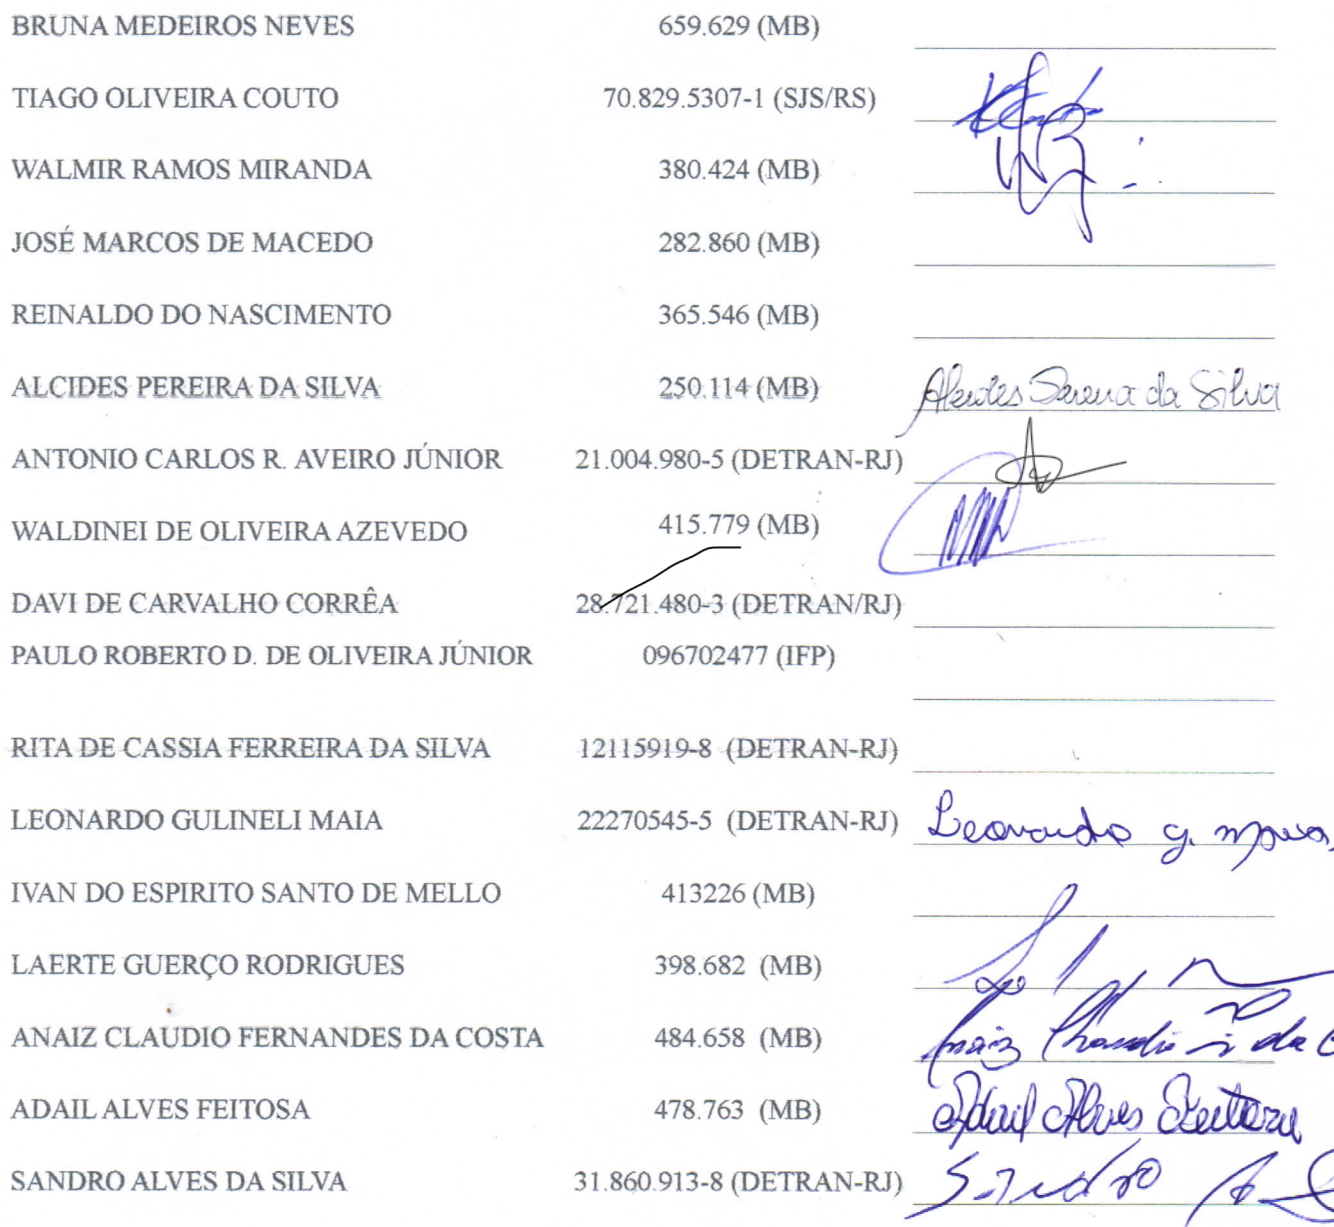 BRUNA MEDEIROS NEVES 659.629 (MB)
TIAGO OLIVEIRA COUTO 70.829.5307-1 (SJS/RS)
WALMIR RAMOS MIRANDA 380.424 (MB)
JOSÉ MARCOS DE MACEDO 282.860 (MB)
REINALDO DO NASCIMENTO 365.546 (MB)
ALCIDES PEREIRA DA SILVA 250.114 (MB) Alcides Pereira da Silva
ANTONIO CARLOS R. AVEIRO JÚNIOR 21.004.980-5 (DETRAN-RJ)
WALDINEI DE OLIVEIRA AZEVEDO 415.779 (MB)
DAVI DE CARVALHO CORRÊA 28.721.480-3 (DETRAN/RJ)
PAULO ROBERTO D. DE OLIVEIRA JÚNIOR 096702477 (IFP)
RITA DE CASSIA FERREIRA DA SILVA 12115919-8 (DETRAN-RJ)
LEONARDO GULINELI MAIA 22270545-5 (DETRAN-RJ) Leonardo G. Maia
IVAN DO ESPIRITO SANTO DE MELLO 413226 (MB)
LAERTE GUERÇO RODRIGUES 398.682 (MB)
ANAIZ CLAUDIO FERNANDES DA COSTA 484.658 (MB) Anaiz Claudio da
ADAIL ALVES FEITOSA 478.763 (MB) Adail Alves Feitosa
SANDRO ALVES DA SILVA 31.860.913-8 (DETRAN-RJ) Sandro